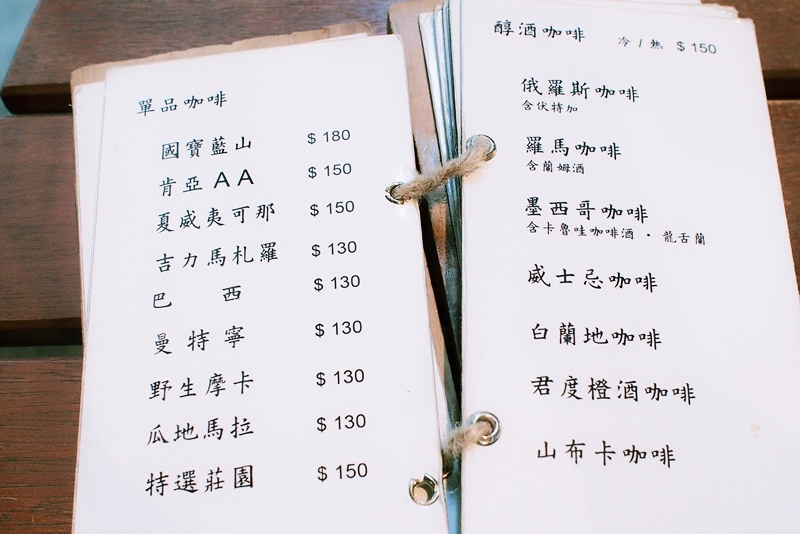 單品咖啡
國寶藍山 $ 180
肯亞 A A $ 150
夏威夷可那 $ 150
吉力馬札羅 $ 130
巴 西 $ 130
曼特寧 $ 130
野生摩卡 $ 130
瓜地馬拉 $ 130
特選莊園 $ 150
醇酒咖啡 冷 / 熱 $ 150
俄羅斯咖啡
含伏特加
羅馬咖啡
含蘭姆酒
墨西哥咖啡
含卡魯哇咖啡酒 · 龍舌蘭
威士忌咖啡
白蘭地咖啡
君度橙酒咖啡
山布卡咖啡